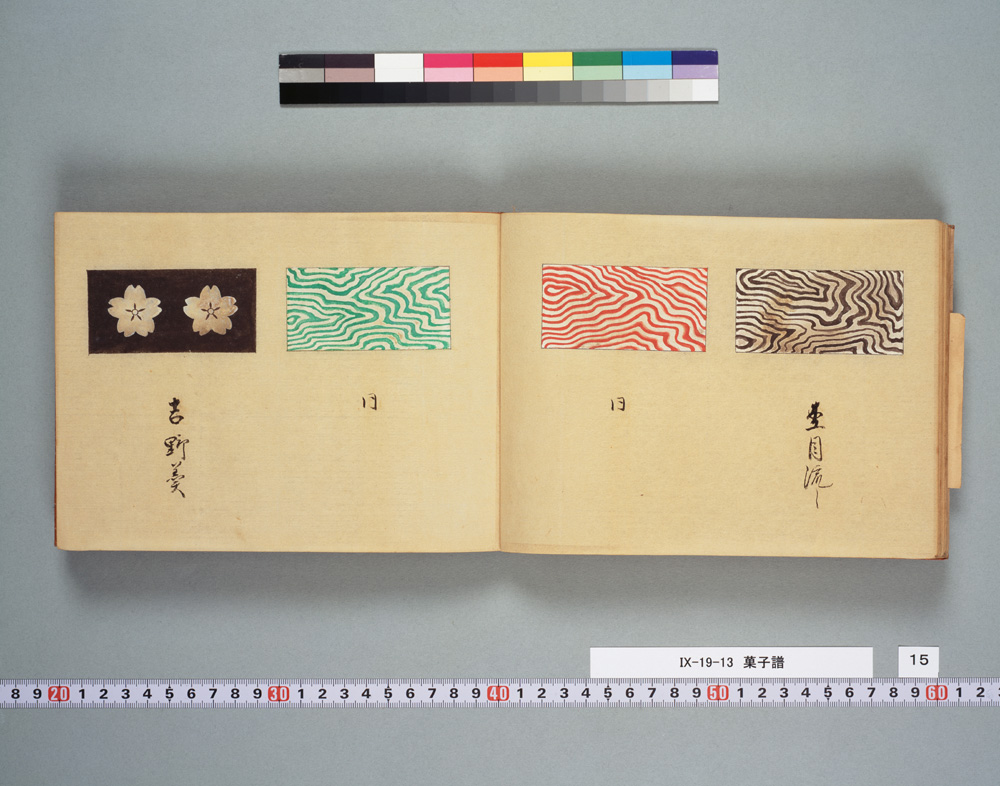 杢目流し
同
同
吉野羹
IX-19-13 菓子譜
15
8 9 20 1 2 3 4 5 6 7 8 9 30 1 2 3 4 5 6 7 8 9 40 1 2 3 4 5 6 7 8 9 50 1 2 3 4 5 6 7 8 9 60 1 2